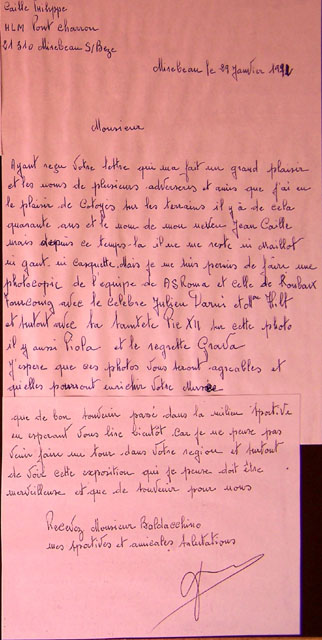 Caille Philippe
HLM Pont Charron
21310 Mirebeau S/Beze
Mirebeau le 29 Janvier 1992
Monsieur
Ayant reçu votre lettre qui ma fait un grand plaisir
et les noms de plusieurs adversers et amies que j'ai eu
le plaisir de Cotoyes sur les terrains il y à de cela
quarante ans et le nom de mon neveu Jean Caille
mais depuis ce temps la il ne me reste ni maillot
ni gant ni casquette dais je me suis permis de faire une
photocopie de l'equipe de AS Roma et celle de Roubaix
Tourcoing avec le celebre Julien Darui et Mr Hilt
et surtout avec sa saintete Pie XII sur cette photo
il y aussi Piola et le regrette Grava
J'espere que ces photos vous seront agreables et
qu'elles pourront enrichir votre musee
que de bon souvenir passe dans la milieu sportive
en esperant vous lire bientôt car je ne pense pas
venir faire un tour dans votre region et surtout
de voir cette exposition qui je pense doit être
merveilleuse et que de souvenir pour nous
Recevez Monsieur Baldacchino
mes sportives et amicales salutations